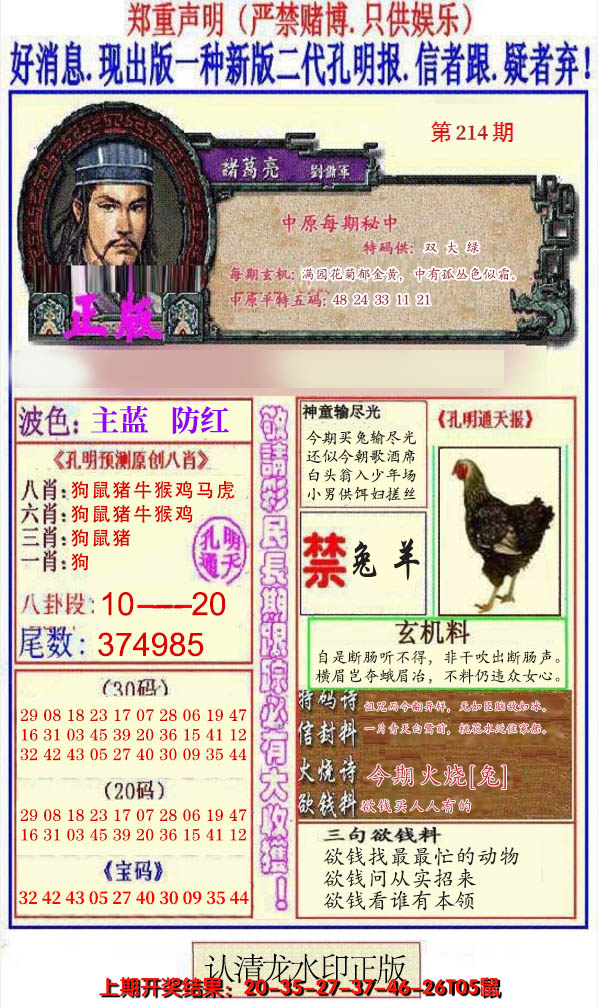 郑重声明（严禁赌博.只供娱乐）
好消息.现出版一种新版二代孔明报.信者跟.疑者弃！
第214期
諸葛亮 劉備軍
中原每期秘中
特码供：双大绿
每期玄机：满园花菊郁金黄，中有孤丛色似霜。
中原平特五码：48 24 33 11 21
正版
波色：主蓝 防红
《孔明预测原创八肖》
八肖：狗鼠猪牛猴鸡马虎
六肖：狗鼠猪牛猴鸡
三肖：狗鼠猪
一肖：狗
孔明通天
八卦段：10——20
尾数：374985
（30码）
29 08 18 23 17 07 28 06 19 47
16 31 03 45 39 20 36 15 41 12
32 42 43 05 27 40 30 09 35 44
（20码）
29 08 18 23 17 07 28 06 19 47
16 31 03 45 39 20 36 15 41 12
《宝码》
32 42 43 05 27 40 30 09 35 44
敬請彩民長期跟踪必有大收獲！
神童输尽光
今期买兔输尽光
还似今朝歌酒席
白头翁入少年场
小男供饵妇搓丝
《孔明通天报》
禁 兔羊
玄机料
自是断肠听不得，非干吹出断肠声。
横眉岂夺蛾眉冶，不料仍违众女心。
特码诗
信封料 一片青天白鹭前，桃花水泛住家船。
火烧诗 今期火烧[兔]
欲钱料 欲钱买人人有的
三句欲钱料
欲钱找最最忙的动物
欲钱问从实招来
欲钱看谁有本领
认清龙水印正版
上期开奖结果：20-35-27-37-46-26T05鼠